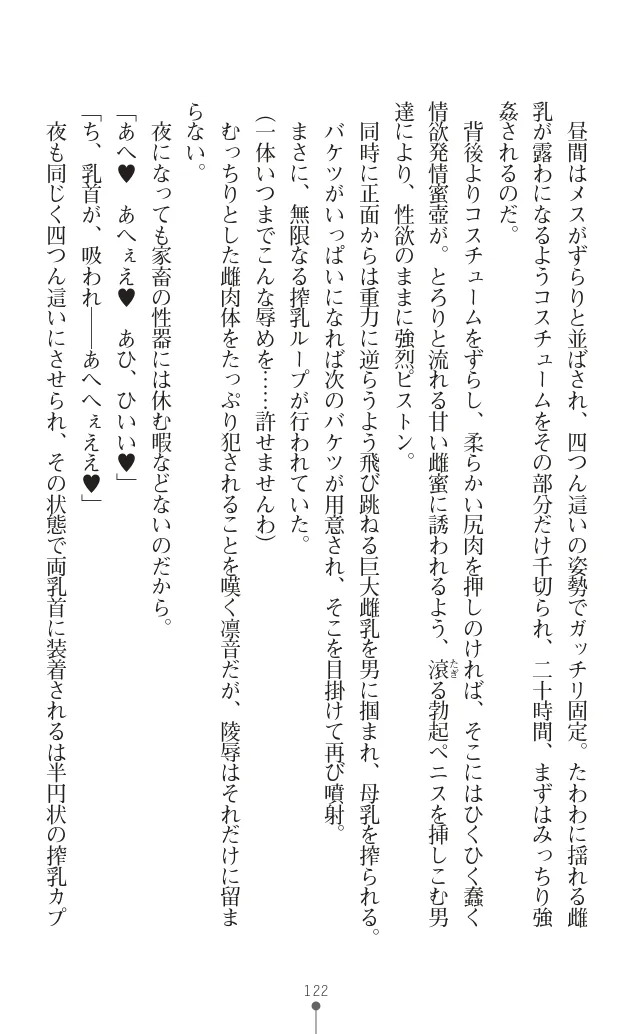 昼間はメスがずらりと並ばされ、四つん這いの姿勢でガッチリ固定。たわわに揺れる雌
乳が露わになるようコスチュームをその部分だけ千切られ、二十時間、まずはみっちり強
姦されるのだ。
背後よりコスチュームをずらし、柔らかい尻肉を押しのければ、そこにはひくひく蠢く
情欲発情蜜壺が。とろりと流れる甘い雌蜜に誘われるよう、滾る勃起ペニスを挿しこむ男
達により、性欲のままに強烈ピストン。
同時に正面からは重力に逆らうよう飛び跳ねる巨大雌乳を男に掴まれ、母乳を搾られる。
バケツがいっぱいになれば次のバケツが用意され、そこを目掛けて再び噴射。
まさに、無限なる搾乳ループが行われていた。
(一体いつまでこんな辱めを……許せませんわ)
むっちりとした雌肉体をたっぷり犯されることを嘆く凛音だが、陵辱はそれだけに留ま
らない。
夜になっても家畜の性器には休む暇などないのだから。
「あへ♥　あへぇえ♥　あひ、ひいい♥」
「ち、乳首が、吸われ――あへへぇええ♥」
夜も同じく四つん這いにさせられ、その状態で両乳首に装着されるは半円状の搾乳カプ
たぎ
122